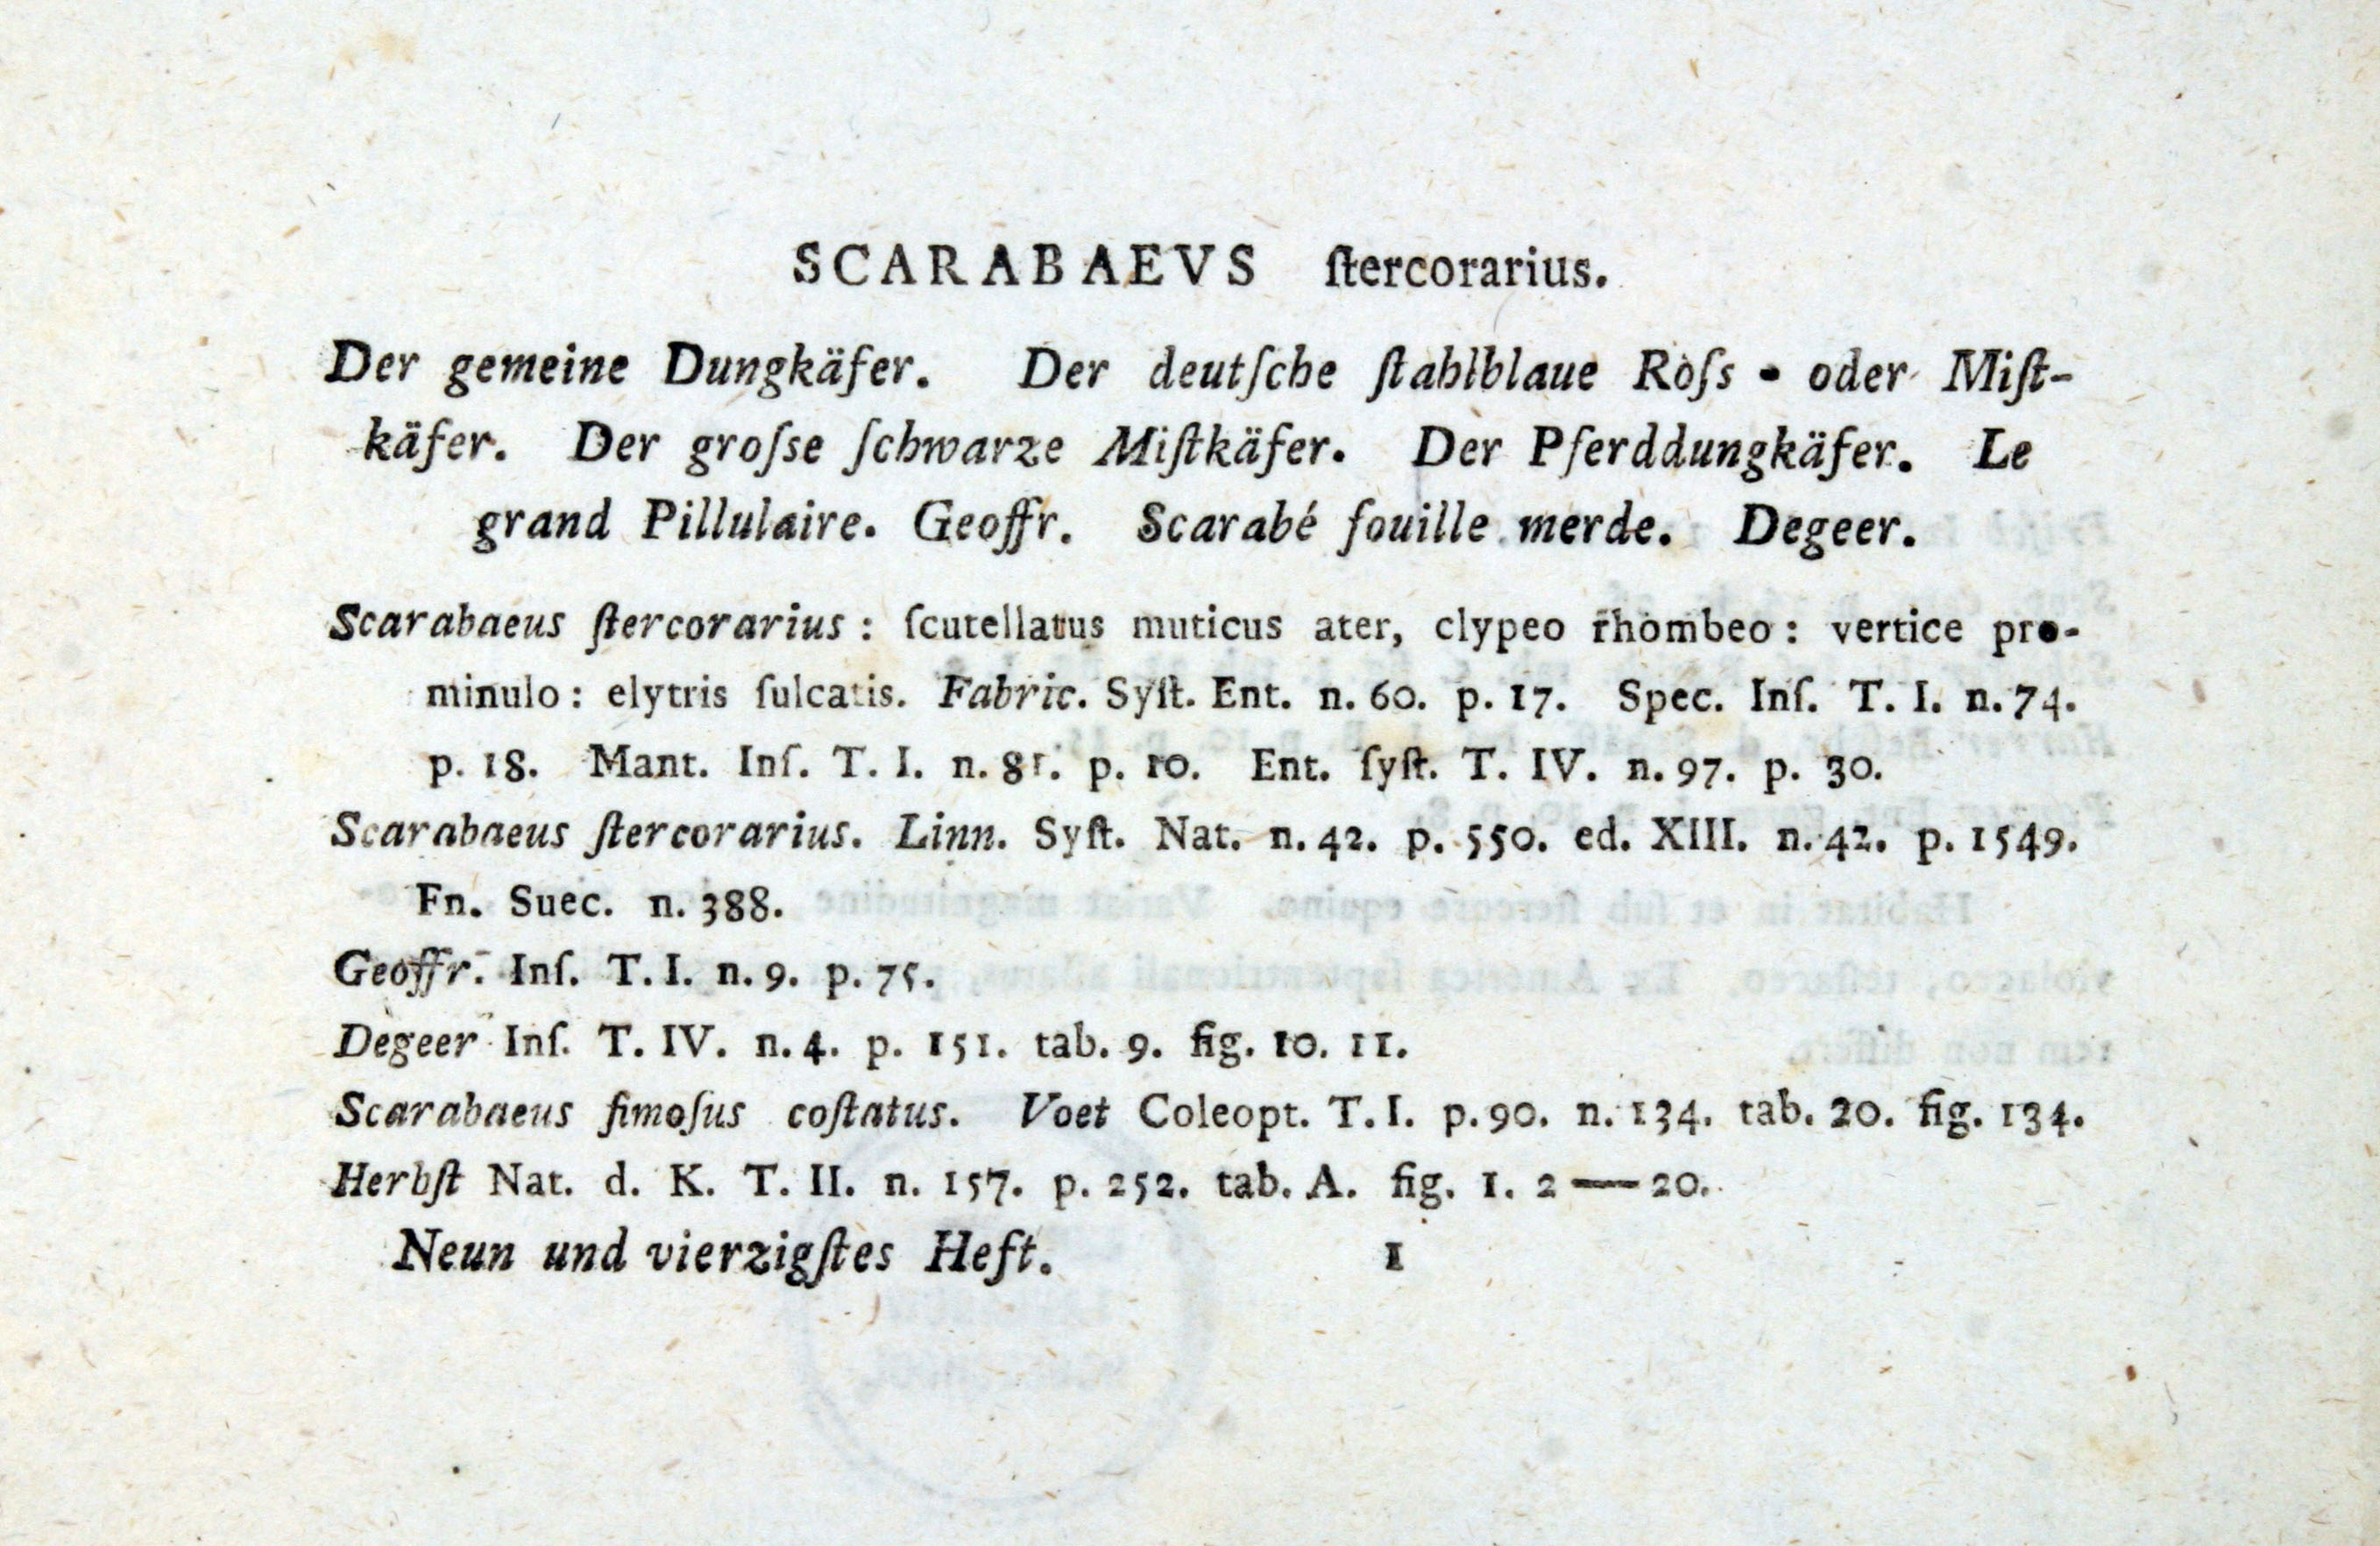 SCARABAEVS ſtercorarius.
Der gemeine Dungkäfer. Der deutſche ſtahlblaue Roſs - oder Miſt-
käfer. Der groſse ſchwarze Miſtkäfer. Der Pferddungkäfer. Le
grand Pillulaire. Geoffr. Scarabé fouille merde. Degeer.
Scarabaeus ſtercorarius : ſcutellatus muticus ater, clypeo rhombeo : vertice pro-
minulo : elytris ſulcatis. Fabric. Syſt. Ent. n. 60. p. 17. Spec. Inſ. T. I. n. 74.
p. 18. Mant. Inſ. T. I. n. 81. p. 10. Ent. ſyſt. T. IV. n. 97. p. 30.
Scarabaeus ſtercorarius. Linn. Syſt. Nat. n. 42. p. 550. ed. XIII. n. 42. p. 1549.
Fn. Suec. n. 388.
Geoffr. Inſ. T. I. n. 9. p. 75.
Degeer Inſ. T. IV. n. 4. p. 151. tab. 9. fig. 10. 11.
Scarabaeus fimoſus coſtatus. Voet Coleopt. T. I. p. 90. n. 134. tab. 20. fig. 134.
Herbſt Nat. d. K. T. II. n. 157. p. 252. tab. A. fig. 1. 2 — 20.
Neun und vierzigſtes Heft. 1